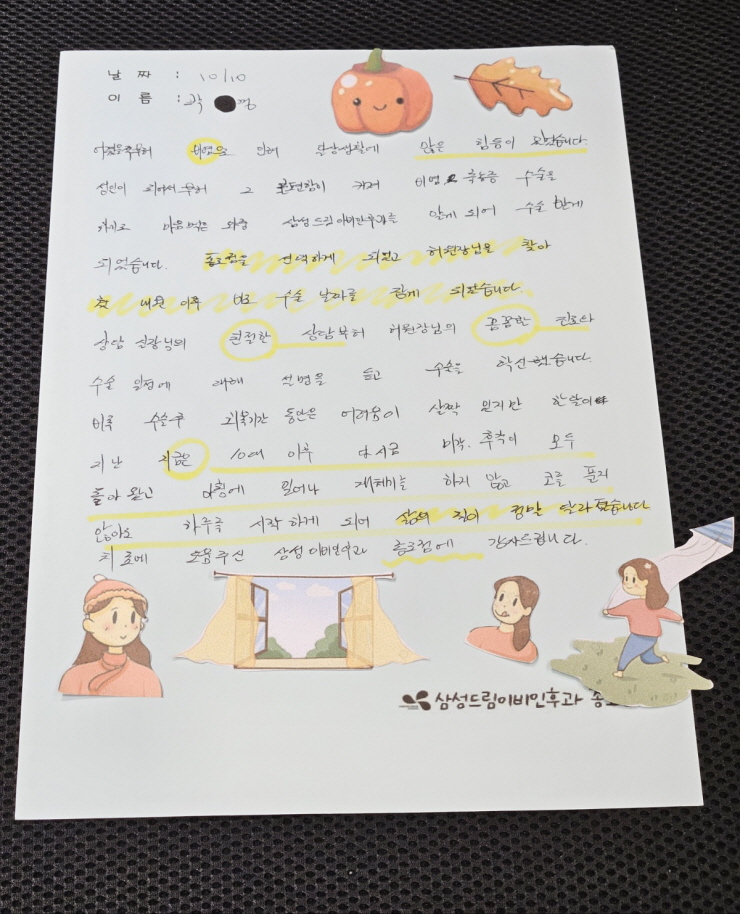 날 짜 : 10/10
이 름 : 곽 낌
어렸을때부터 비염으로 인해 일상생활에 많은 힘듬이 있었습니다.
성인이 되어서부터 그 불편함이 커져 비염 축농증 수술을
하기로 마음먹은 와중 삼성드림이비인후과를 알게 되어 수술 함게
되었습니다. 종로점을 선택하게 되었고 허원장님을 찾아
첫 내원 이후 바로 수술 날짜를 잡게 되었습니다.
상담 실장님의 친절한 상담부터 허원장님의 꼼꼼한 진료와
수술 일정에 대해 설명을 듣고 수술을 확신했습니다.
비록 수술후 회복기간 동안은 어려움이 살짝 있지만 한달이
지난 지금은 10여 이후 다시금 미각, 후각이 모두
돌아 왔고 아침에 일어나 재채기를 하지 않고 코를 풀지
않아도 하루를 시작 하게 되어 삶의 질이 정말 달라졌습니다.
치료에 도움주신 삼성이비인후과 종로점에 감사드립니다.
삼성드림이비인후과